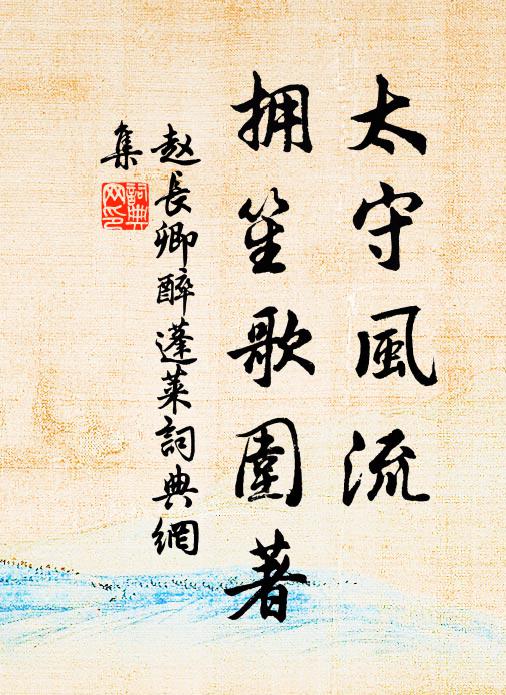 太守風流
拥笙歌圍著
赵長卿醉蓬萊詞典網
集
詞典
网印